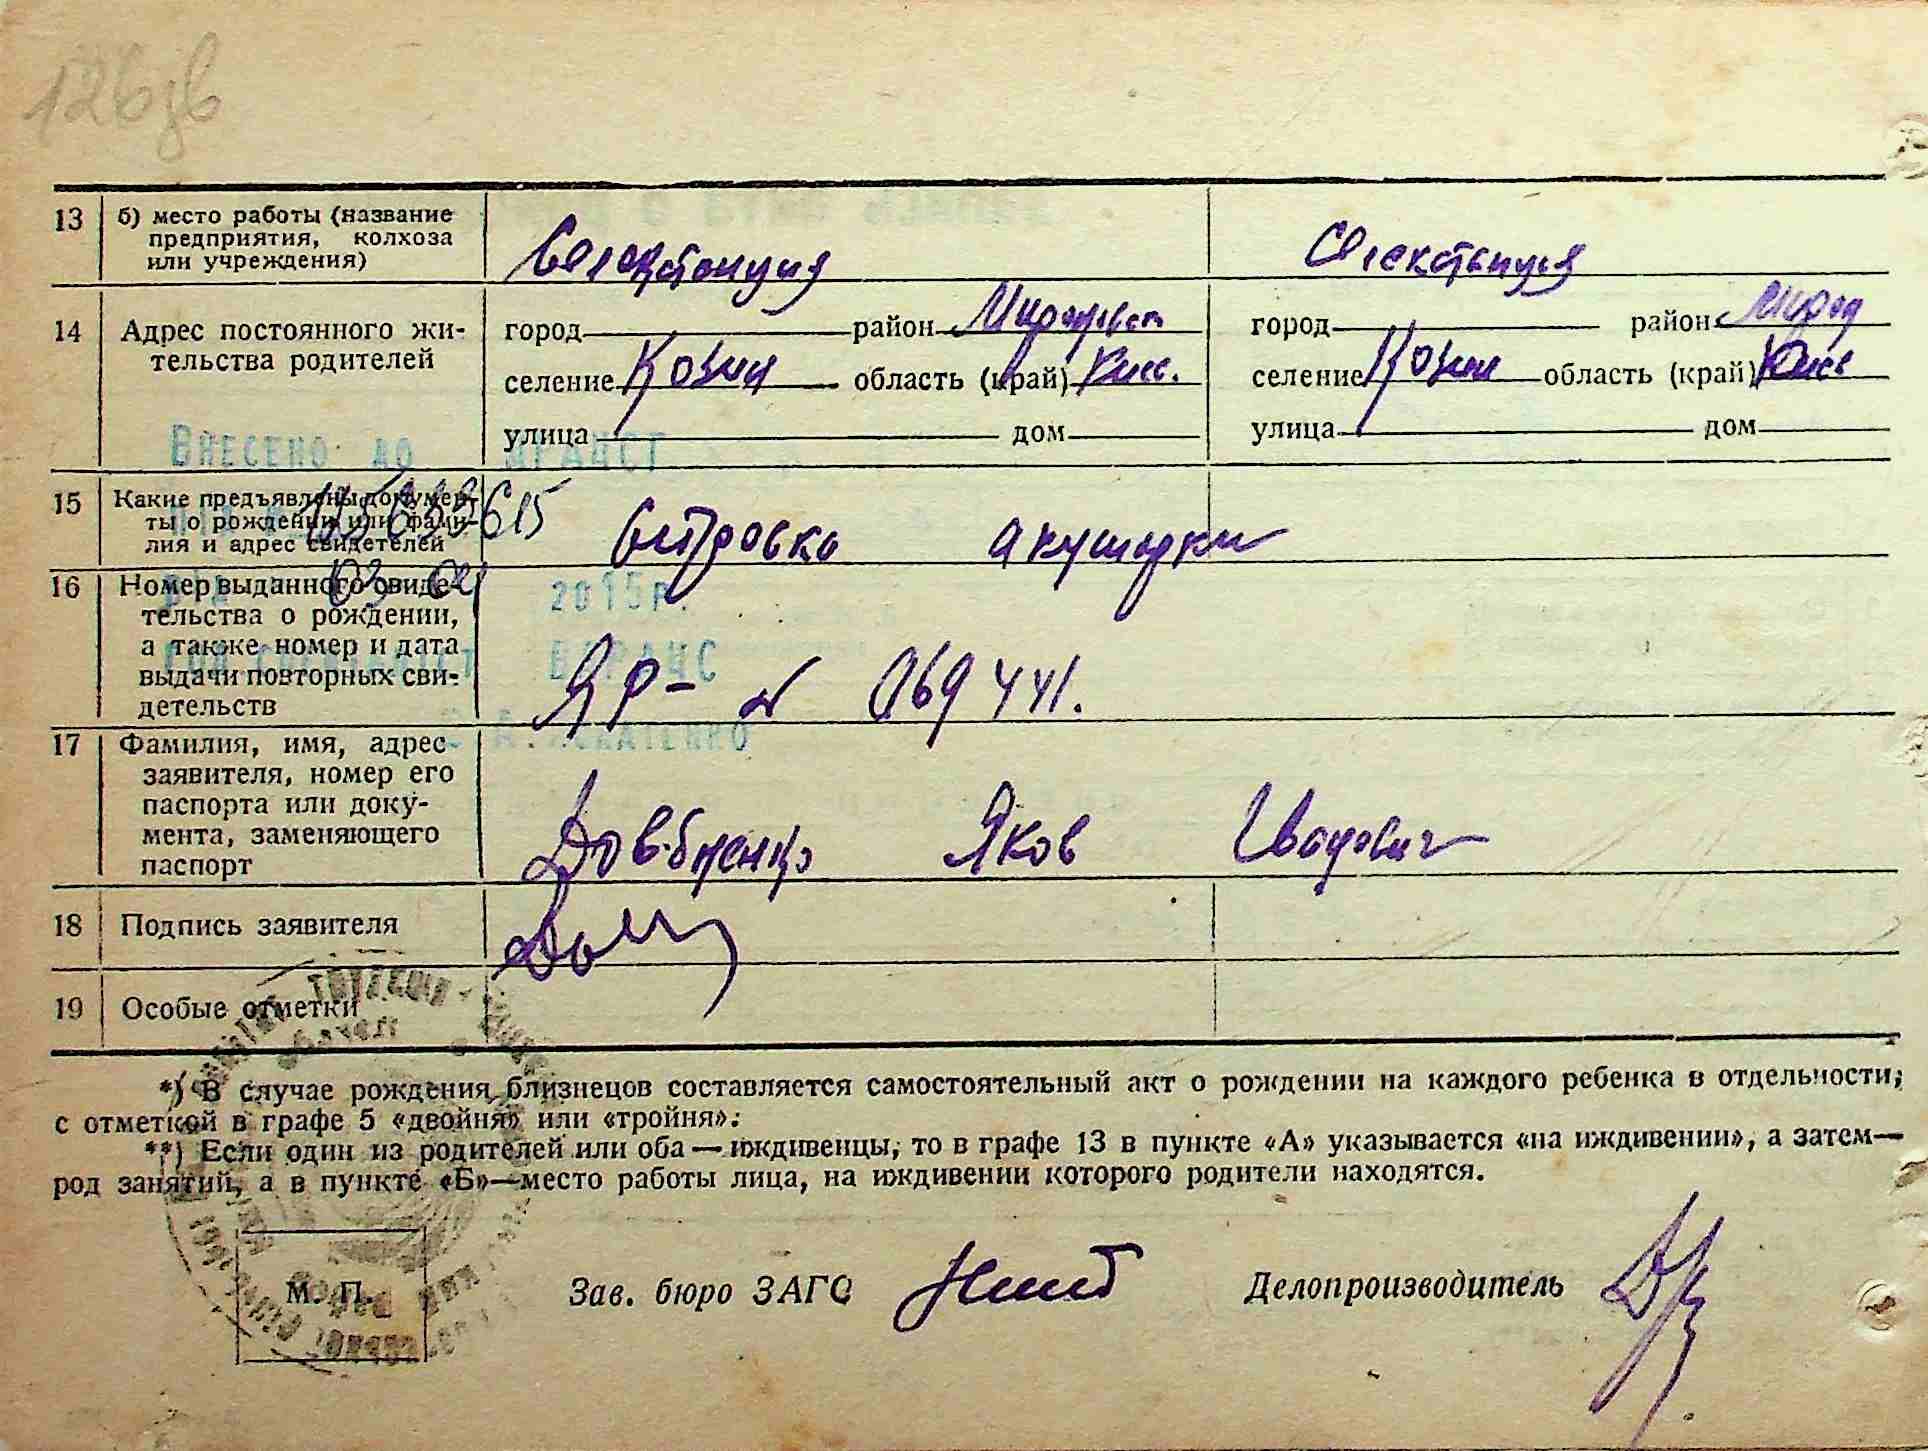 126 зв
13 б) место работы (название
предприятия, колхоза
или учреждения)
Селекстанция Селекстанция
14 Адрес постоянного жи-
тельства родителей
город район Мироновск город район Мирон
селение Козин область (край) Киев. селение Козин область (край) Киев
улица дом улица дом
ВНЕСЕНО ДО ДРАЦСГ
15 Какие предъявлены докумен-
ты о рождении или фами-
лия и адрес свидетелей
справка акушерки
16 Номер выданного свиде-
тельства о рождении,
а также номер и дата
выдачи повторных сви-
детельств
2015р.
ЯР- № 069441.
17 Фамилия, имя, адрес
заявителя, номер его
паспорта или доку-
мента, заменяющего
паспорт
Довбненко Яков Иванович
18 Подпись заявителя
19 Особые отметки
*) В случае рождения близнецов составляется самостоятельный акт о рождении на каждого ребенка в отдельности;
с отметкой в графе 5 «двойня» или «тройня».
**) Если один из родителей или оба — иждивенцы, то в графе 13 в пункте «А» указывается «на иждивении», а затем—
род занятий, а в пункте «Б»—место работы лица, на иждивении которого родители находятся.
М. П. Зав. бюро ЗАГС Делопроизводитель